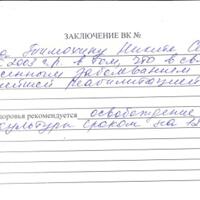 ЗАКЛЮЧЕНИЕ ВК №
Никите
2003 г.р. в том, что в св
заболеванием
реабилитацией
доровья рекомендуется освобождение
культуры сроком на